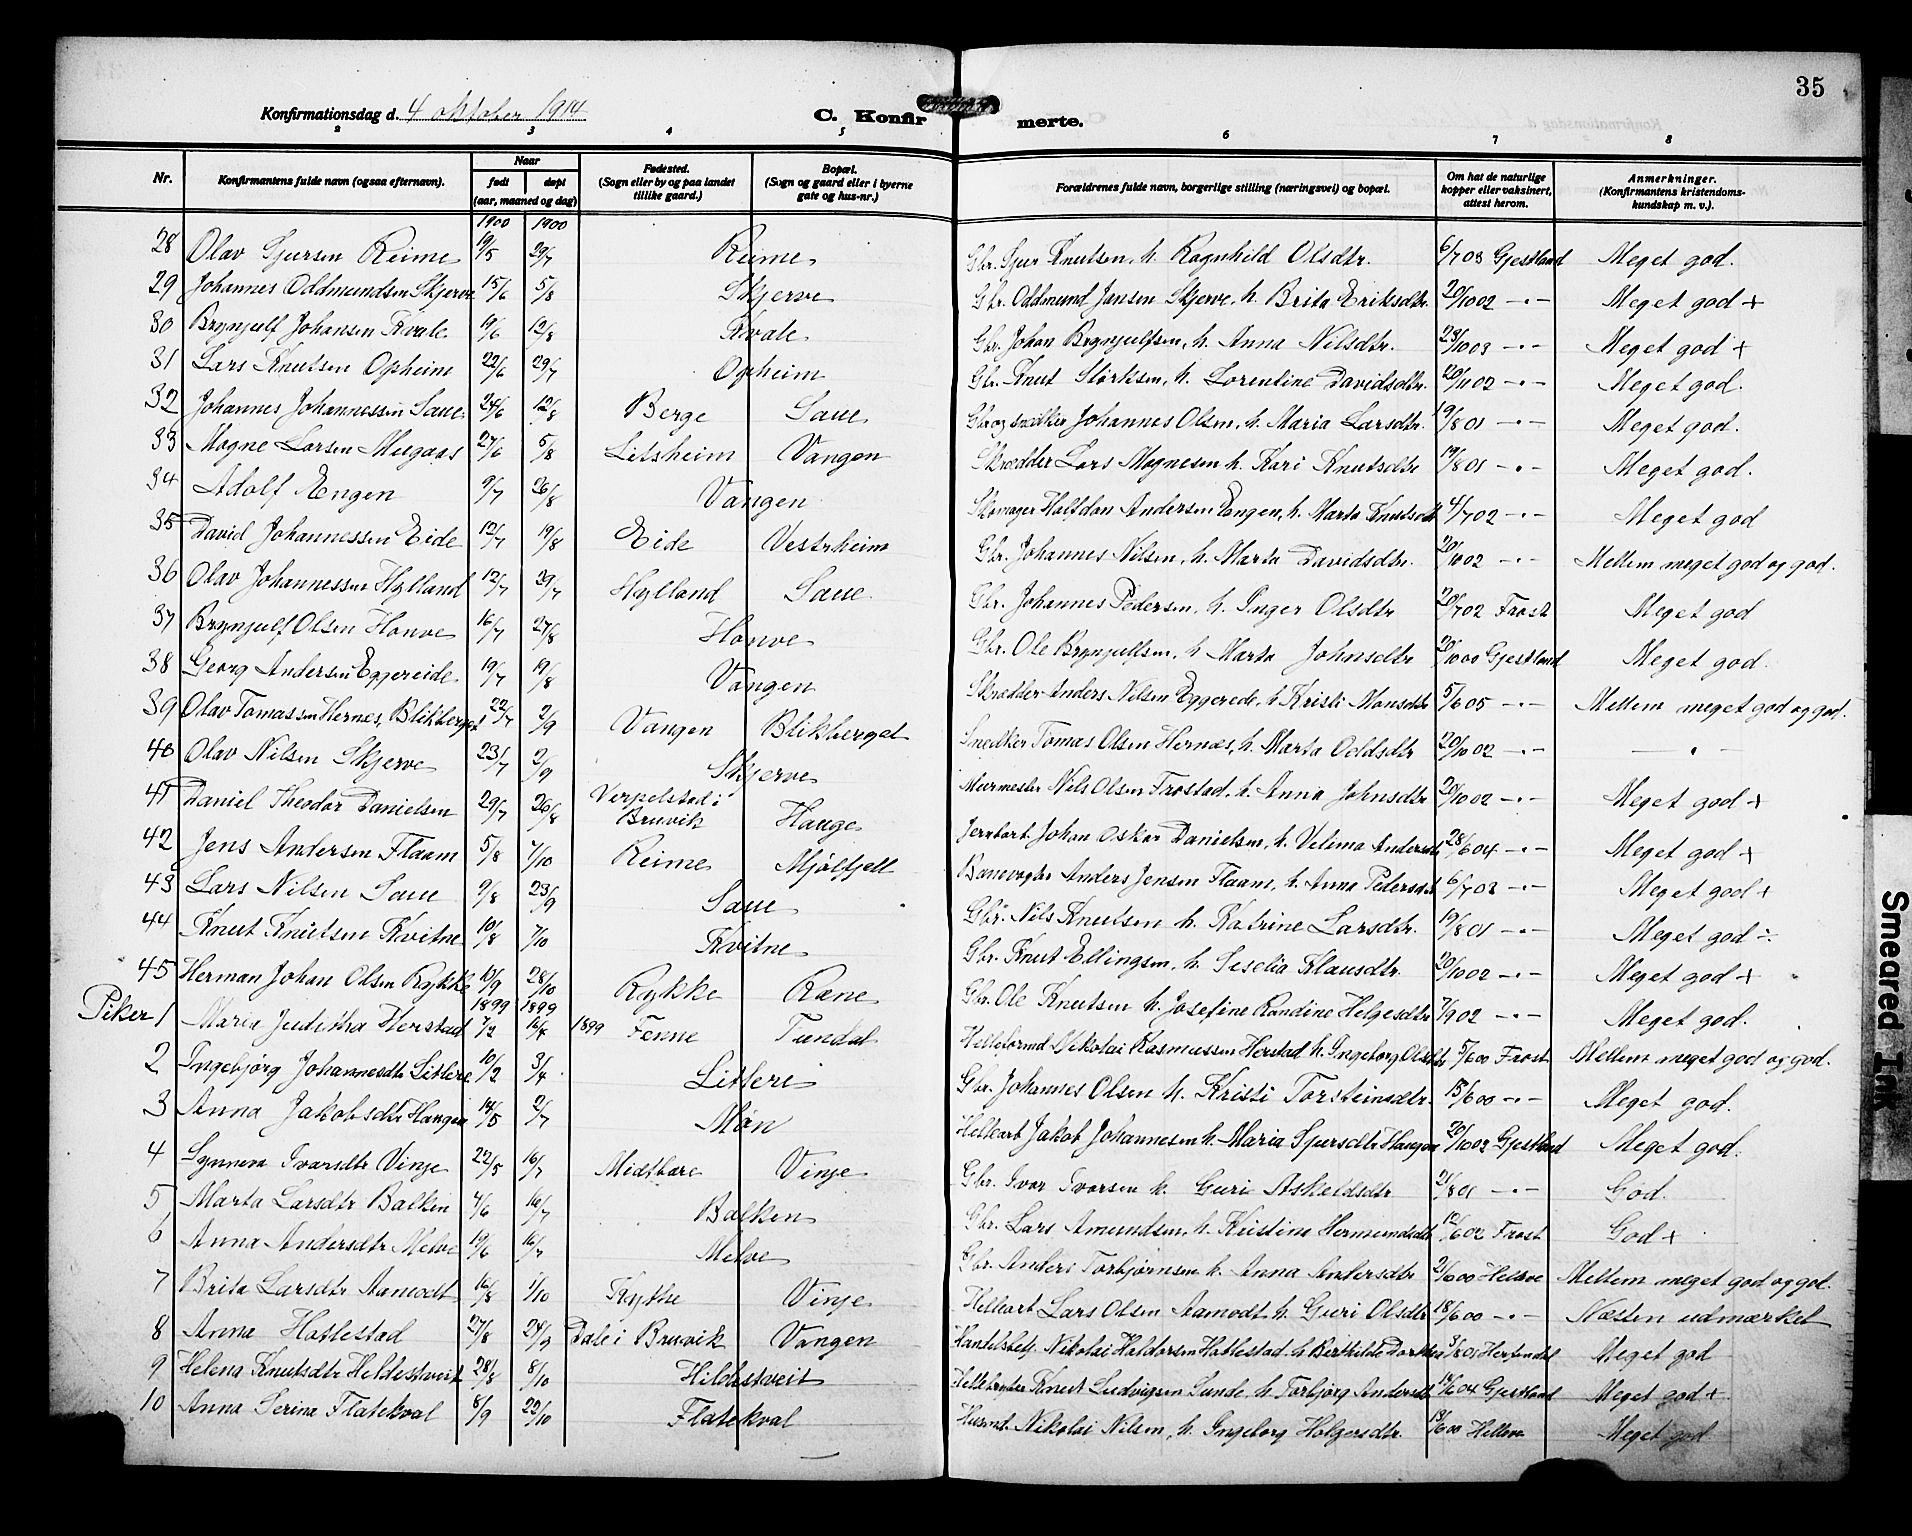 35
Konfirmationsdag d. 4 oktober 1914
C. Konfirmerte.
2 3 4 5 6 7 8
Nr. Konfirmantens fulde navn (ogsaa efternavn). Naar født døpt (aar, maaned og dag) Fødested. (Sogn eller by og paa landet tillike gaard.) Bopæl. (Sogn og gaard eller i byerne gate og hus-nr.) Forældrenes fulde navn, borgerlige stilling (næringsvei) og bopæl. Om hat de naturlige kopper eller vaksinert, attest herom. Anmerkninger. (Konfirmantens kristendoms-kundskap m. v.).
1900 1900
28 Olav Sjursen Reime 19/5 29/7 Reime Gbr. Sjur Knutsen, h. Ragnhild Olsdtr. 6/7 03 Gjestland Meget god.
29 Johannes Oddmundsen Skjerve 15/6 5/8 Skjerve Gbr. Oddmund Jensen Skjerve, h. Brita Eriksdtr. 20/10 02 -"- Meget god +
30 Brynjulf Johansen Kvale 19/6 12/8 Kvale Gbr. Johan Brynjulfsen, h. Anna Nilsdtr. 23/10 03 -"- Meget god +
31 Lars Knutsen Opheim 22/6 29/7 Opheim Gbr. Knut Størksen, h. Lorentine Davidsdtr. 20/11 02 -"- Meget god.
32 Johannes Johannessen Saue 24/6 12/8 Berge Saue Gbr og snedker Johannes Olsen, h. Maria Larsdtr. 19/8 01 -"- Meget god.
33 Magne Larsen Melgaas 27/6 5/8 Litsheim Vangen Skrædder Lars Magnesen h. Kari Knutsdtr 19/8 01 -"- Meget god.
34 Adolf Engen 9/7 26/8 Vangen Skomager Halfdan Andersen Engen, h. Marta Knutsdt 4/7 02 -"- Meget god
35 David Johannessen Eide 12/7 19/8 Eide Vestrheim Gbr. Johannes Nilsen, h. Marta Davidsdtr. 20/10 02 -"- Mellem meget god og god.
36 Olav Johannessen Hylland 12/7 29/7 Hylland Saue Gbr. Johannes Pedersen, h. Inger Olsdtr 20/7 02 Frost Meget god
37 Brynjulf Olsen Honve 16/7 27/8 Honve Gbr. Ole Brynjulfsen, h. Marta Johnsdtr 20/10 00 Gjestland Meget god.
38 Georg Andersen Eggereide 19/7 19/8 Vangen Skrædder Anders Nilsen Eggerede, h. Kristi Monsdtr 5/6 05 -"- Mellem meget god og god.
39 Olav Tomassen Hernes, Blikberget 22/7 2/9 Vangen Blikberget Snedker Tomas Olsen Hernæs, h. Marta Oddsdtr 20/10 02 -"- - " -
40 Olav Nilsen Skjerve 23/7 2/9 Skjerve Murmester Nils Olsen Frostad, h. Anna Johnsdtr 20/10 02 -"- Meget god +
41 Daniel Theodor Danielsen 29/7 26/8 Verpelstad i Bruvik Hauge Jernbarb Johan Oskar Danielsen, h. Velima Andersdt 28/6 04 -"- Meget god +
42 Jens Andersen Flaam 5/8 7/10 Reime Mjølfjell Banevogter Anders Jensen Flaam, h. Anna Pedersdt 6/7 03 -"- Meget god +
43 Lars Nilsen Saue 9/8 23/9 Saue Gbr. Nils Knutsen h. Katrine Larsdtr. 19/8 01 -"- Meget god ÷
44 Knut Knutsen Kvitne 10/8 7/10 Kvitne Gbr. Knut Ellingsen, h. Seselia Klausdtr. 20/10 02 -"- Meget god +
45 Herman Johan Olsen Rykke 13/9 28/10 Rykke Rene Gbr. Ole Knutsen h. Josefine Randine Helgesdtr 7/9 02 -"- Meget god.
1899 1899
Piker 1 Maria Juditha Herstad 7/2 16/4 1899 Fenne Tundal Nikolai Rasmussen Herstad h. Ingeborg Olsdtr 5/6 00 Frost Mellem meget god og god.
2 Ingebjørg Johannesdtr Litlere 10/2 3/4 Litleri Gbr. Johannes Olsen h. Kristi Torsteinsdtr. 15/6 00 -"- Meget god.
3 Anna Jakobsdtr Haugen 14/5 2/7 Møn Helleart Jakob Johannesen h. Maria Sjursdtr Haugen 20/10 02 Gjestland Meget god.
4 Synneva Ivarsdtr Vinje 22/5 16/7 Midtbære Vinje Gbr. Ivar Ivarsen h. Guri Askeldsdtr 21/8 01 -"- God.
5 Marta Larsdtr Balken 4/6 16/7 Balken Gbr. Lars Amundsen, h. Kristina Hermundsdt 12/6 02 Frost God +
6 Anna Andersdtr Melve 19/6 16/7 Melve Gbr. Anders Torbjørnsen h. Anna Andersdtr 21/6 00 Helleve Mellem meget god og god.
7 Brita Larsdtr Aamodt 16/8 1/10 Kythe Vinje Helleart Lars Olsen Aamodt h. Guri Olsdtr 18/6 00 -"- Næsten udmærket
8 Anna Hatlestad 27/8 24/9 Dale i Bruvik Vangen Handelsbetj. Nikolai Haldorsen Hatlestad h Berthilde Dorthea 3/8 01 Herfindal Meget god
9 Helena Knutsdtr Heldestveit 28/8 8/10 Hildestveit Knut Ludvigsen Sunde, h. Torbjørg Andersdt 14/6 04 Gjestland Meget god +
10 Anna Serina Flatekval 8/9 22/10 Flatekval Husmd. Nikolai Nilsen, h. Ingeborg Holgersdtr. 13/6 00 Helleve Meget god
Smeared Ink